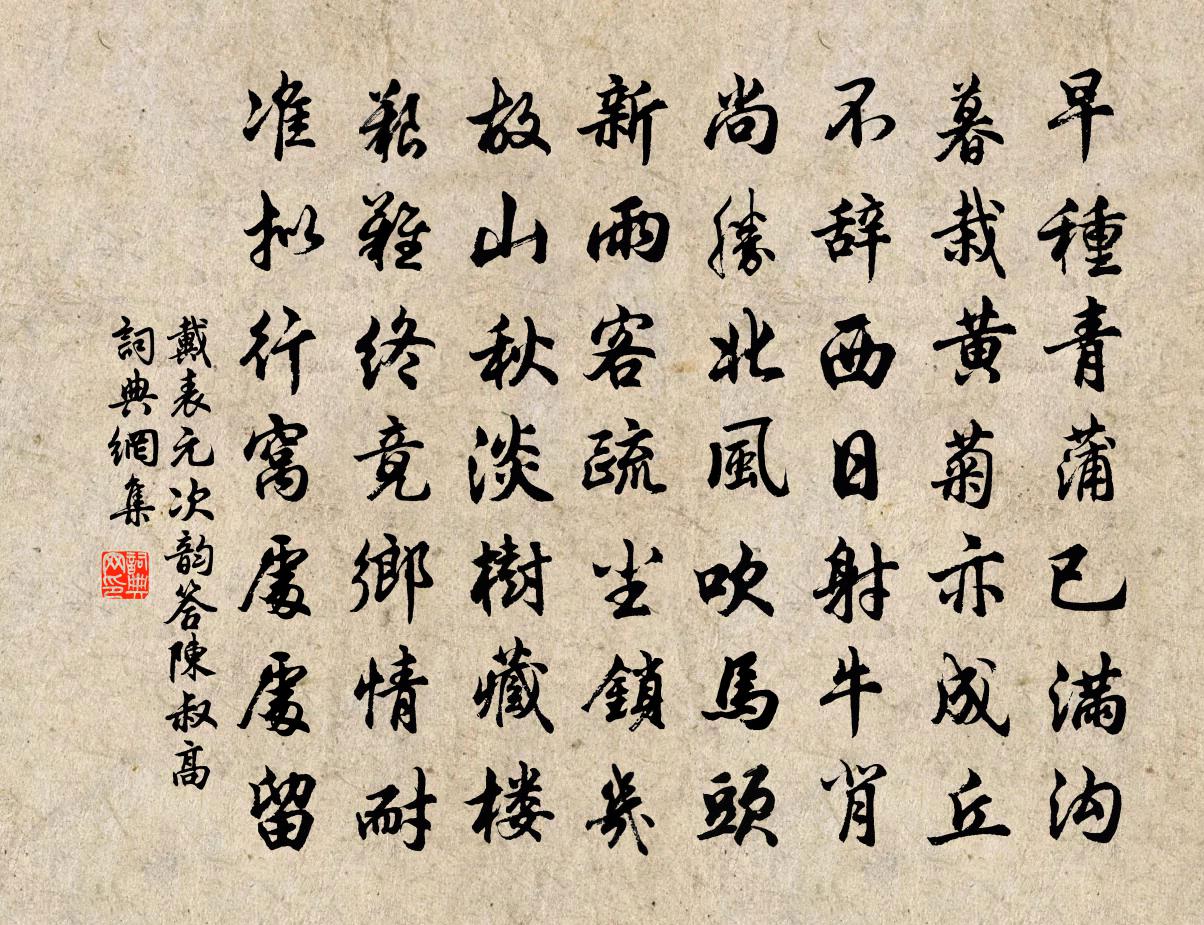 早種青蒲已滿沟
暮栽黄菊亦成丘
不辞西日射牛背
尚勝北風吹馬頭
新雨客疏尘鎖几
故山秋淡樹藏楼
艰難终竟鄉情耐
准拟行窝處處留
戴表元次韵答陳叔高
詞典網集